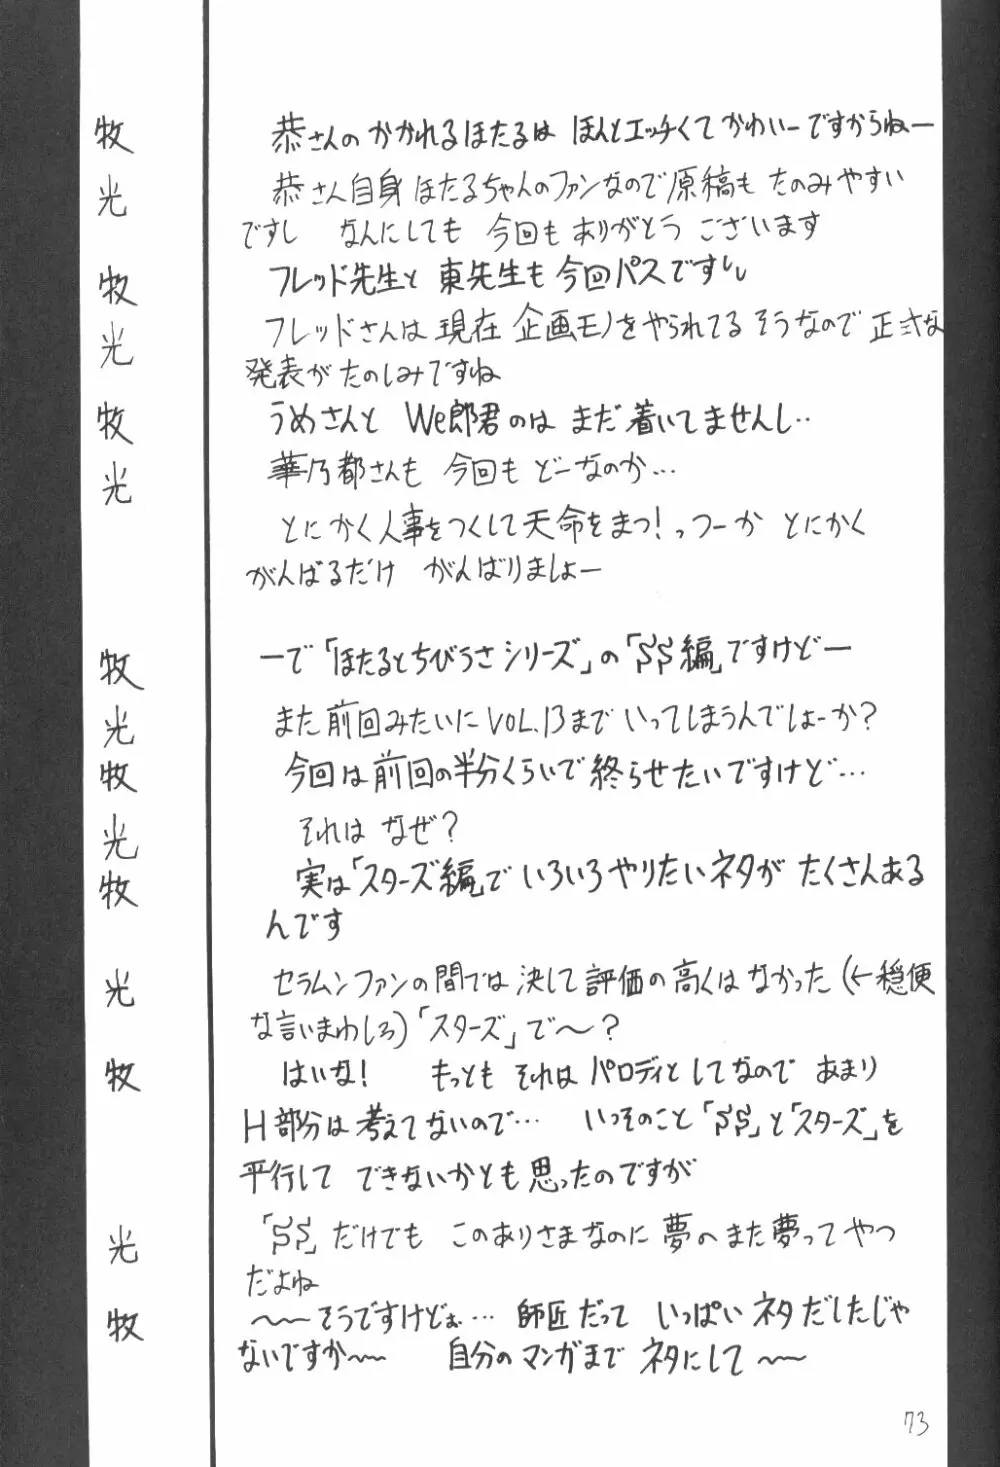 牧 恭さんのかかれるほたるは ほんとエッチくてかわいーですからねー
光 恭さん自身ほたるちゃんのファンなので原稿も たのみやすい
ですし なんにしても 今回も ありがとう ございます
牧 フレッド先生と 東先生も今回パスですし
光 フレッドさんは 現在 企画モノをやられてる そうなので 正式な
発表が たのしみですね
牧 うめさんと We郎君のは まだ 着いてませんし‥
光 華乃都さんも 今回も どーなのか…
とにかく人事をつくして天命をまつ!っつーか とにかく
がんばるだけ がんばりましょー
牧 ーで「ほたるとちびうさシリーズ」の「SS編」ですけどー
光 また前回みたいにVOL.13まで いってしまうんでしょーか?
牧 今回は前回の半分くらいで終らせたいですけど…
光 それは なぜ?
牧 実は「スターズ編」で いろいろやりたいネタが たくさんある
んです
光 セラムンファンの間では 決して 評価の高くは なかった(←穏便
な言いまわしろ)「スターズ」で〜?
牧 はいな! もっとも それは パロディとしてなので あまり
H部分は考えてないので… いっそのこと「SS」と「スターズ」を
平行して できないかとも思ったのですが
光 「SS」だけでも このありさまなのに 夢のまた夢ってやつ
だよね
牧 〜〜そうですけどぉ… 師匠だって いっぱい ネタだしたじゃ
ないですか〜〜 自分のマンガまで ネタにして〜〜
73